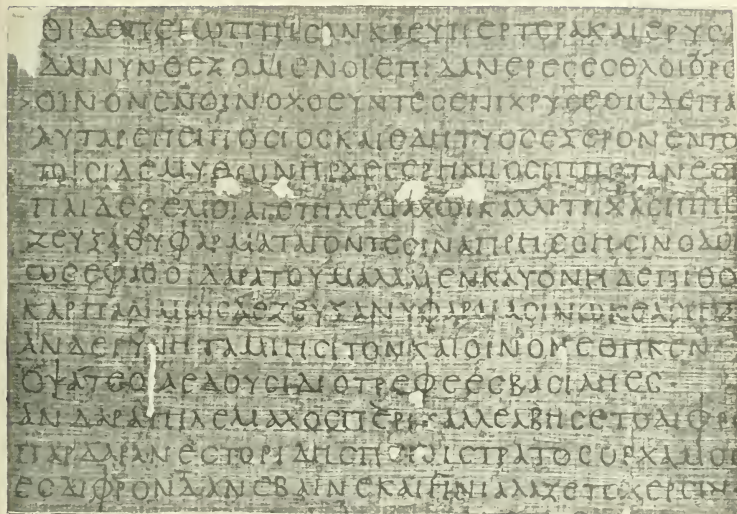 ΟΙΔΕΠΕΙΩΠΤΗCΑΝΚΡΕΥΠΕΡΤΕΡΑΚΑΙΕΡΥCΑ
ΔΑΙΝΥΝΘΕΖΟΜΕΝΟΙΕΠΙΔΑΝΕΡΕCΕCΘΛΟΙΟΡΟ
>ΟΙΝΟΝΕΝΟΙΝΟΧΟΕΥΝΤΕCΕΝΙΧΡΥCΕΟΙCΔΕΠΑ
ΑΥΤΑΡΕΠΕΙΠΟCΙΟCΚΑΙΕΔΗΤΥΟCΕΞΕΡΟΝΕΝΤΟ
ΤΟΙCΙΔΕΜΥΘΩΝΗΡΧΕΓΕΡΗΝΙΟCΙΠΠΟΤΑΝΕCΤ
ΠΑΙΔΕCΕΜΟΙΑΓΕΤΗΛΕΜΑΧΩΙΚΑΛΛΙΤΡΙΧΑCΙΠΠΟ
ΖΕΥΞΑΘΥΦΑΡΜΑΤΑΓΟΝΤΕCΙΝΑΠΡΗCCΗCΙΝΟΔΟΙ
ΩCΕΦΑΘΟΙΔΑΡΑΤΟΥΜΑΛΑΜΕΝΚΛΥΟΝΗΔΕΠΙΘΟ
ΚΑΡΠΑΛΙΜΩCΔΕΖΕΥΞΑΝΥΦΑΡΜΑCΙΝΩΚΕΑCΙΠΠ
ΑΝΔΕΓΥΝΗΤΑΜΙΗCΙΤΟΝΚΑΙΟΙΝΟΝΕΘΗΚΕΝ
ΟΨΑΤΕΟΙΑΕΔΟΥCΙΔΙΟΤΡΕΦΕΕCΒΑCΙΛΗΕC
ΑΝΔΑΡΑΤΗΛΕΜΑΧΟCΠΕΡΙΚΑΛΛΕΑΒΗCΕΤΟΔΙΦΡΟ
ΠΑΡΔΑΡΑΝΕCΤΟΡΙΔΗCΠΕΙCΙCΤΡΑΤΟCΟΡΧΑΜΟC
ΕCΔΙΦΡΟΝΔΑΝΕΒΑΙΝΕΚΑΙΗΝΙΑΛΑΖΕΤΟΧΕΡCΙΝ